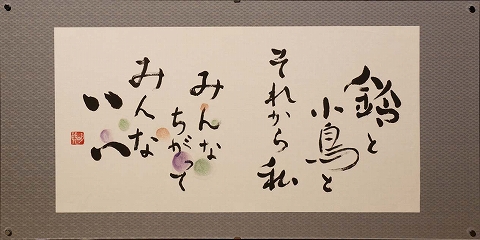 鈴と
小鳥と
それから私
みんな
ちがって
みんな
いい